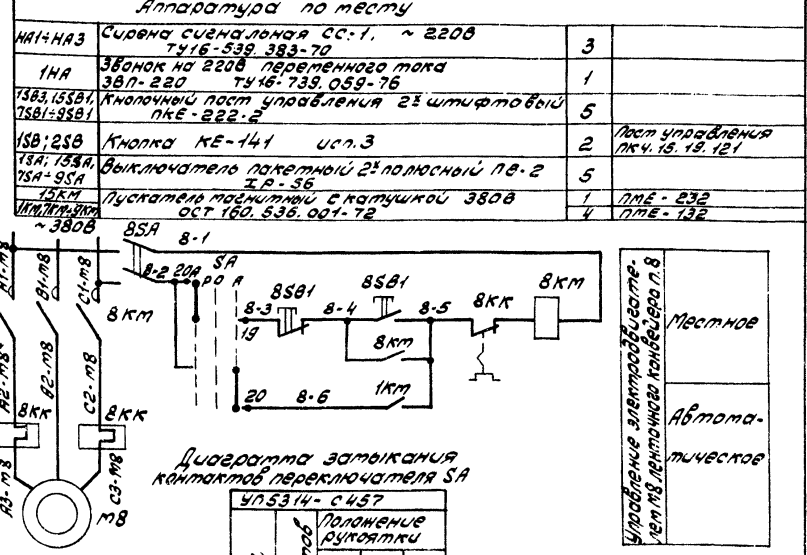 Аппаратура по месту
НА1÷НА3 Сирена сигнальная СС-1, ~ 220В 3
ТУ16-539.383-70
1НА Звонок на 220В переменного тока 1
ЗВП-220 ТУ16-739.059-76
1SB3,15SB1, Кнопочный пост управления 2х штифтовый 5
7SB1÷9SB1 ПКЕ-222-2
1SB; 2SB Кнопка КЕ-141 исп.3 2 Пост управления
ПКУ.15.19.121
1SA; 15SA, Выключатель пакетный 2х полюсный ПВ-2 5
7SA÷9SA IP-56
15КМ Пускатель магнитный с катушкой 380В 1 ПМЕ-232
1КМ,7КМ÷9КМ ОСТ 160.536.001-72 4 ПМЕ-132
~380В
8SA
8-1
A1-М8
B1-М8
C1-М8
8-2
20А
SA
Р О А
8КМ
8-3
19
8SB1
8-4
8SB1
8-5
8КК
8КМ
8КМ
1КМ
20
8-6
A2-М8
B2-М8
C2-М8
8КК
8КК
A3-М8
C3-М8
М8
Управление электродвигате-
лем М8 ленточного конвейера п.8
Местное
Автома-
тическое
Диаграмма замыкания
контактов переключателя SA
УП5314-С457
Положение
рукоятки